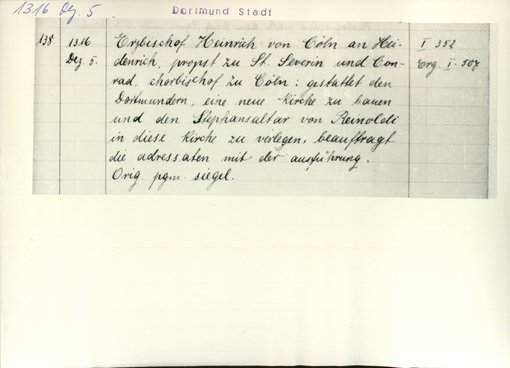 1316 Dez 5
Dortmund Stadt
138. 1316 Erzbischof Heinrich von Cöln an Hei- I 352
Dez 5. denrich, propst zu St. Severin und Con- Erg. I 507
rad, chorbischof zu Cöln: gestattet den
Dortmundern, eine neue Kirche zu bauen
und den Stephansaltar von Reinoldi
in diese Kirche zu verlegen, beauftragt
die adressaten mit der ausführung.
Orig. pgm. siegel.